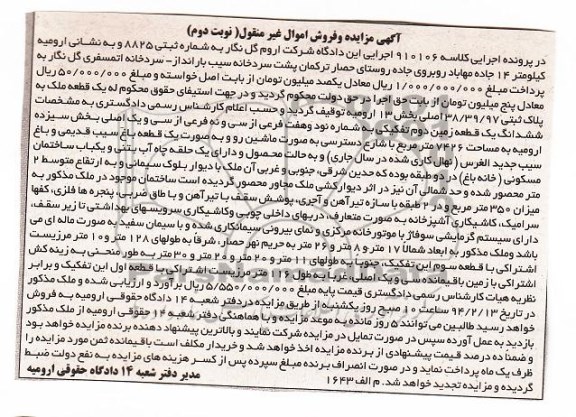 آگهی مزایده وفروش اموال غیر منقول( نوبت دوم)
در پرونده اجرایی کلاسه ۹۱۰۱۰۶ اجرایی این دادگاه شرکت اروم گل نگار به شماره ثبتی ۸۸۲۵ و به نشانی ارومیه
کیلومتر ۱۴ جاده مهاباد روبروی جاده روستای حصار ترکمان پشت سردخانه سیب بارانداز- سردخانه اتمسفری گل نگار به
پرداخت مبلغ ۱/۰۰۰/۰۰۰/۰۰۰ ریال معادل یکصد میلیون تومان از بابت اصل خواسته و مبلغ ۵۰/۰۰۰/۰۰۰ ریال
معادل پنج میلیون تومان از بابت حق اجرا در حق دولت محکوم گردید و در جهت استیفای حقوق محکوم له یک قطعه ملک به
پلاک ثبتی ۳۸/۳۹/۹۷ اصلی بخش ۱۳ ارومیه توقیف گردید و حسب اعلام کارشناس رسمی دادگستری به مشخصات
ششدانگ یک قطعه زمین دوم تفکیکی به شماره نود وهفت فرعی از سی و نه فرعی از سی و یک اصلی بخش سیزده
ارومیه به مساحت ۳۴۲۶ متر مربع با شارع دسترسی به صورت ماشین رو و به صورت یک قطعه باغ سیب قدیمی و باغ
سیب جدید الغرس ( نهال کاری شده در سال جاری) و به حالت محصول و دارای یک حلقه چاه آب بتنی و یکباب ساختمان
مسکونی ( خانه باغ) در دو طبقه بوده که حدین شرقی، جنوبی و غربی آن ملک با دیوار بلوک سیمانی و به ارتفاع متوسط ۲
متر محصور شده و حد شمالی آن نیز در اثر دیوارکشی ملک مجاور محصور گردیده است ساختمان موجود در ملک مذکور به
میزان ۳۵۰ متر مربع و در ۲ طبقه با سازه تیرآهن و آجری، پوشش سقف با تیرآهن و با طاق ضربی، پنجره ها فلزی، کفها
سرامیک، کاشیکاری آشپزخانه به صورت متعارف، دربهای داخلی چوبی وکاشیکاری سرویسهای بهداشتی تا زیر سقف،
دارای سیستم گرمایشی سوفاژ با موتورخانه مرکزی و نمای بیرونی سیمانکاری شده و با سیمان سفید به صورت ماله ای می
باشد وملک مذکور به ابعاد شمالاً ۱۷ متر و ۸ متر و ۲۶ متر به حریم نهر حصار، شرقا به طولهای ۱۲۸ متر و ۱۰ متر مرزیست
اشتراکی با قطعه سوم این تفکیک، جنوبا به طولهای ۱۱ متر و ۲۰ متر و ۲۰ متر و ۳۰ متر به طور منحنی به زینه کش
اشتراکی با زمین باقیمانده سی و یک اصلی، غربا به طول ۱۲۰ متر مرزیست اشتراکی با قطعه اول این تفکیک و برابر
نظریه هیات کارشناس رسمی دادگستری قیمت پایه مبلغ ۵/۵۵۰/۰۰۰/۰۰۰ ریال برآورد و ارزیابی شده و ملک مذکور
در تاریخ ۹۴/۲/۱۳ ساعت ۱۰ صبح روز یکشنبه از طریق مزایده در دفتر شعبه ۱۴ دادگاه حقوقی ارومیه به فروش
خواهد رسید طالبین می توانند ۵ روز مانده به موعد مزایده و با هماهنگی دفتر شعبه ۱۴ حقوقی ارومیه از ملک مذکور
بازدید به عمل آورده سپس در صورت تمایل در مزایده شرکت نمایند و بالاترین پیشنهاد دهنده برنده مزایده خواهد بود
و ضمنا ده درصد قیمت پیشنهادی از برنده مزایده اخذ خواهد شد و خریدار مکلف است باقیمانده ثمن مورد مزایده را
ظرف یک ماه پرداخت نماید و در صورت انصراف برنده مبلغ سپرده پس از کسر هزینه های مزایده به نفع دولت ضبط
گردیده و مزایده تجدید خواهد شد. م الف ۱۶۴۳
مدیر دفتر شعبه ۱۴ دادگاه حقوقی ارومیه